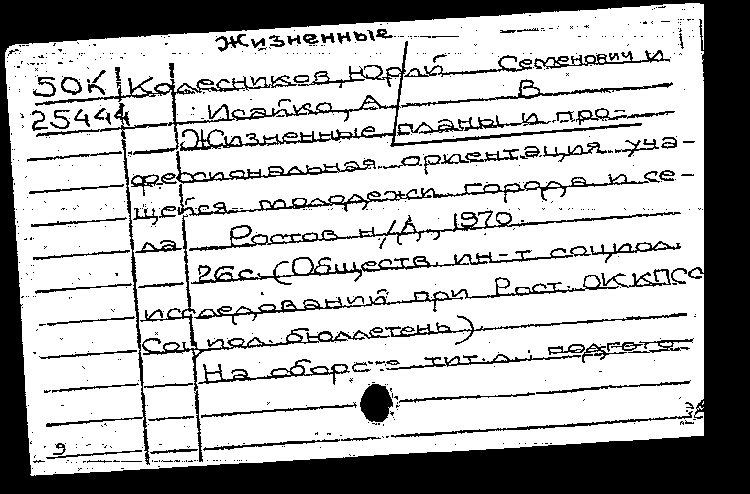 Жизненные
50К Колесников, Юрий Семенович и
25444 Исайко, А В
Жизненные планы и про-
фессиональная ориентация уча-
щейся молодежи города и се-
ла Ростов н/Д., 1970.
26с. (Обществ. ин-т социол.
исследований при Рост. ОК КПСС
Социол. бюллетень).
На обороте тит. л.:
9